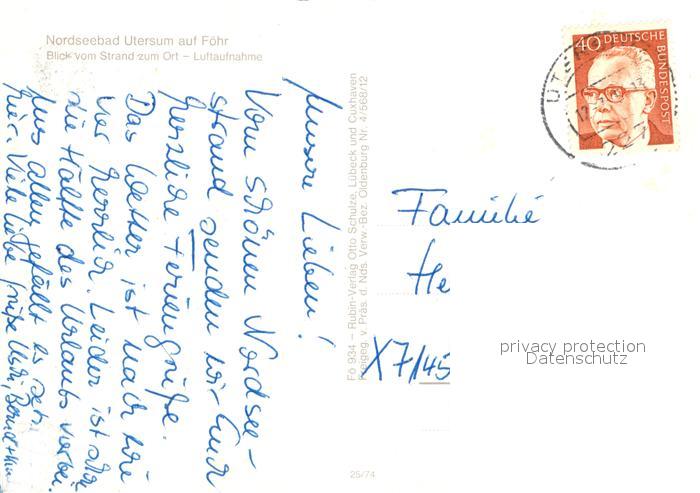 Nordseebad Utersum auf Föhr
Blick vom Strand zum Ort – Luftaufnahme
Unsere Lieben!
Vom schönen Nordsee-
strand senden wir Euch
herzliche Feriengrüße.
Das Wetter ist nach wie
vor herrlich. Leider ist schon
die Hälfte des Urlaubs vorbei.
Uns allen gefällt es sehr
hier. Viele liebe Grüße
Fö 934 – Rubin-Verlag Otto Schulze, Lübeck und Cuxhaven
Freigeg. v. Präs. d. Nds. Verw.-Bez. Oldenburg Nr. 4/668/12
40 DEUTSCHE
BUNDESPOST
Familie
He
X7/145
privacy protection
Datenschutz
25/74